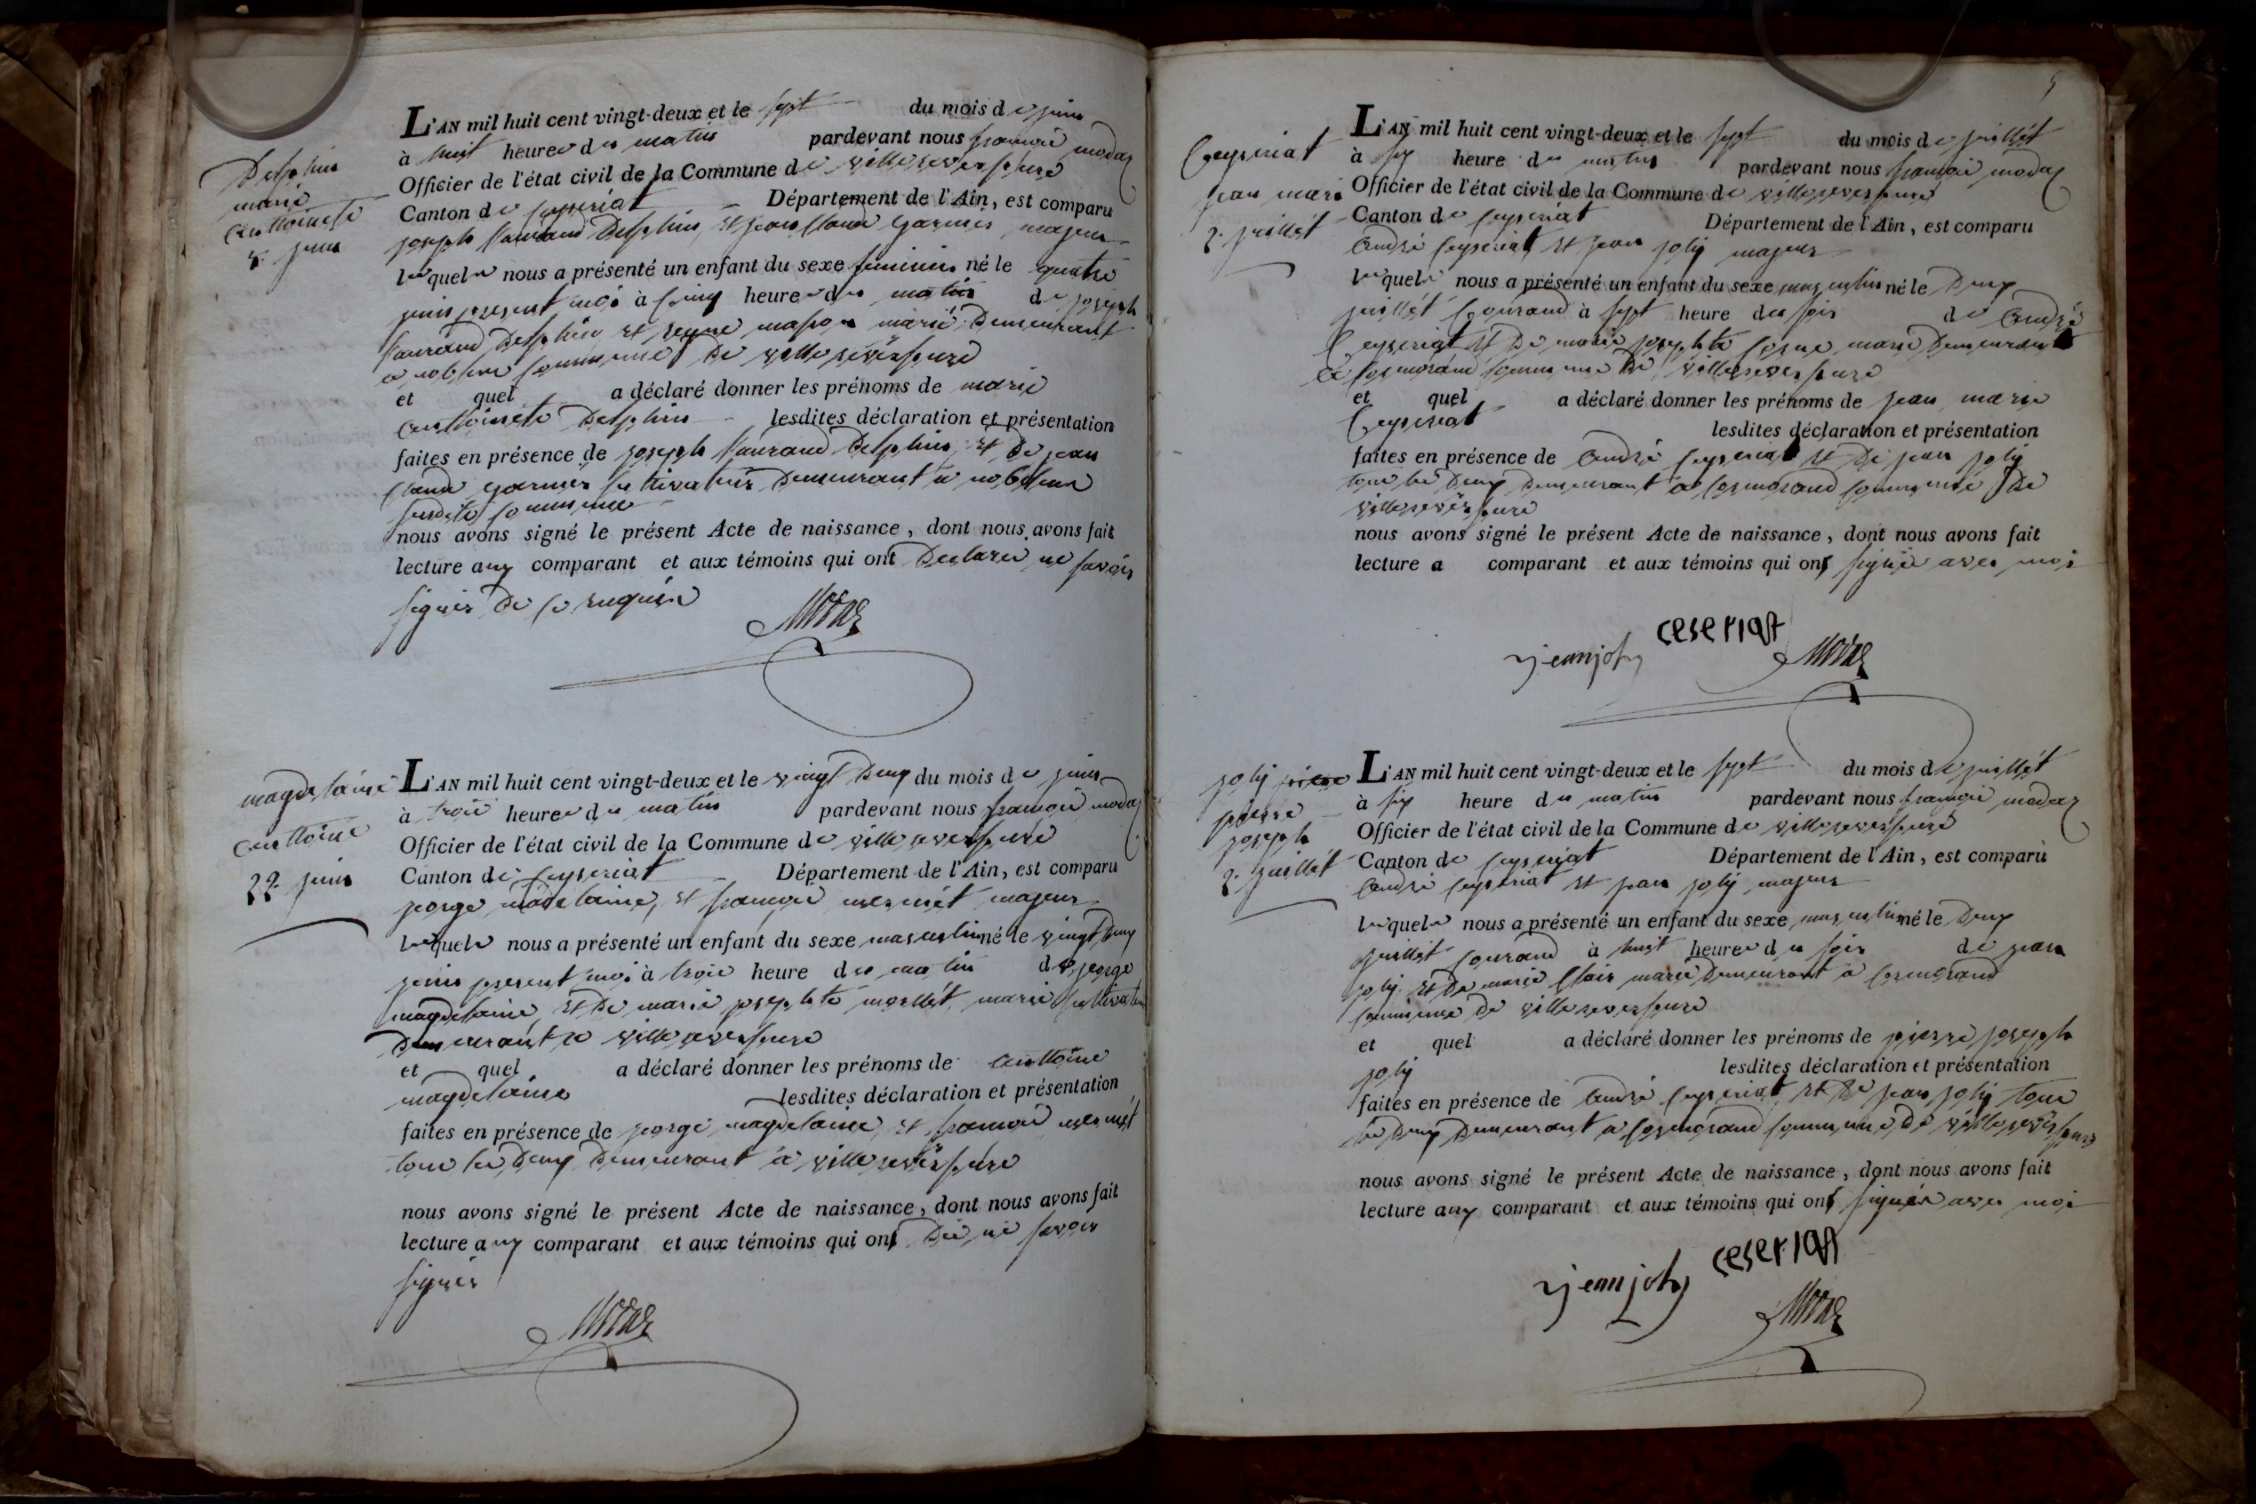 Delphin
marie
anttoinete
4. juin
L'AN mil huit cent vingt-deux et le sept du mois de juin
à huit heure du matin pardevant nous françoi modaz
Officier de l'état civil de la Commune de villereversure
Canton de Ceyseriat Département de l'Ain, est comparu
joseph Delphin, et jean Claud garnier majeur
lequel nous a présenté un enfant du sexe feminin né le quatre
juin present moi à Cinq heure du matin de joseph
Delphin et reyne masson marié Demeurant
a noblens Commune De villereversure
et quel a déclaré donner les prénoms de marie
anttoinete Delphin lesdites déclaration et présentation
faites en présence de joseph Delphin, et De jean
Claud garnier Cultivateur Demeurant a noblens
susdite Commune
nous avons signé le présent Acte de naissance, dont nous avons fait
lecture aux comparant et aux témoins qui ont Declaré ne savoir
signer De ce requis
Modaz
magdelaine
anttoine
22. juin
L'AN mil huit cent vingt-deux et le vingt Deux du mois de juin
à troi heure du matin pardevant nous françoi modaz
Officier de l'état civil de la Commune de villereversure
Canton de Ceyseriat Département de l'Ain, est comparu
jorge madelaine, et françoi mermét majeur
lequel nous a présenté un enfant du sexe masculin né le vingt Deux
juin present moi à troi heure du matin de jorge
magdelaine, et De marie josephte morllét marié Cultivateur
Demeurant a villereversure
et quel a déclaré donner les prénoms de anttoine
magdelaine lesdites déclaration et présentation
faites en présence de jorge magdelaine, et françoi mermét
tous les Deux Demeurant a villereversure
nous avons signé le présent Acte de naissance, dont nous avons fait
lecture aux comparant et aux témoins qui ont Dit ne savoir
signer
Modaz
5
Ceyseriat
jean marie
2. juillét
L'AN mil huit cent vingt-deux et le sept du mois de juillét
à six heure du matin pardevant nous françoi modaz
Officier de l'état civil de la Commune de villereversure
Canton de Ceyseriat Département de l'Ain, est comparu
André Ceyseriat et jean joly majeur
lequel nous a présenté un enfant du sexe masculin né le Deux
juillét Courand à sept heure du soir de André
Ceyseriat et De marie josephte marié Demeurant
a Cormorand Commune De villereversure
et quel a déclaré donner les prénoms de jean marie
Ceyseriat lesdites déclaration et présentation
faites en présence de André Ceyseriat et De jean joly
tous les Deux Demeurant a Cormorand Commune De
villereversure
nous avons signé le présent Acte de naissance, dont nous avons fait
lecture a comparant et aux témoins qui ont signié avec moi
jean joly ceseriat Modaz
joly
pierre
joseph
2. juillét
L'AN mil huit cent vingt-deux et le sept du mois de juillét
à six heure du matin pardevant nous françoi modaz
Officier de l'état civil de la Commune de villereversure
Canton de Ceyseriat Département de l'Ain, est comparu
André Ceyseriat et jean joly majeur
lequel nous a présenté un enfant du sexe masculin né le Deux
juillét Courand à huit heure du soir de jean
joly et De marie Clair marié Demeurant a Cormorand
Commune De villereversure
et quel a déclaré donner les prénoms de pierre joseph
joly lesdites déclaration et présentation
faites en présence de André Ceyseriat et De jean joly tous
les Deux Demeurant a Cormorand Commune De villereversure
nous avons signé le présent Acte de naissance, dont nous avons fait
lecture aux comparant et aux témoins qui ont signié avec moi
jean joly ceseriat
Modaz